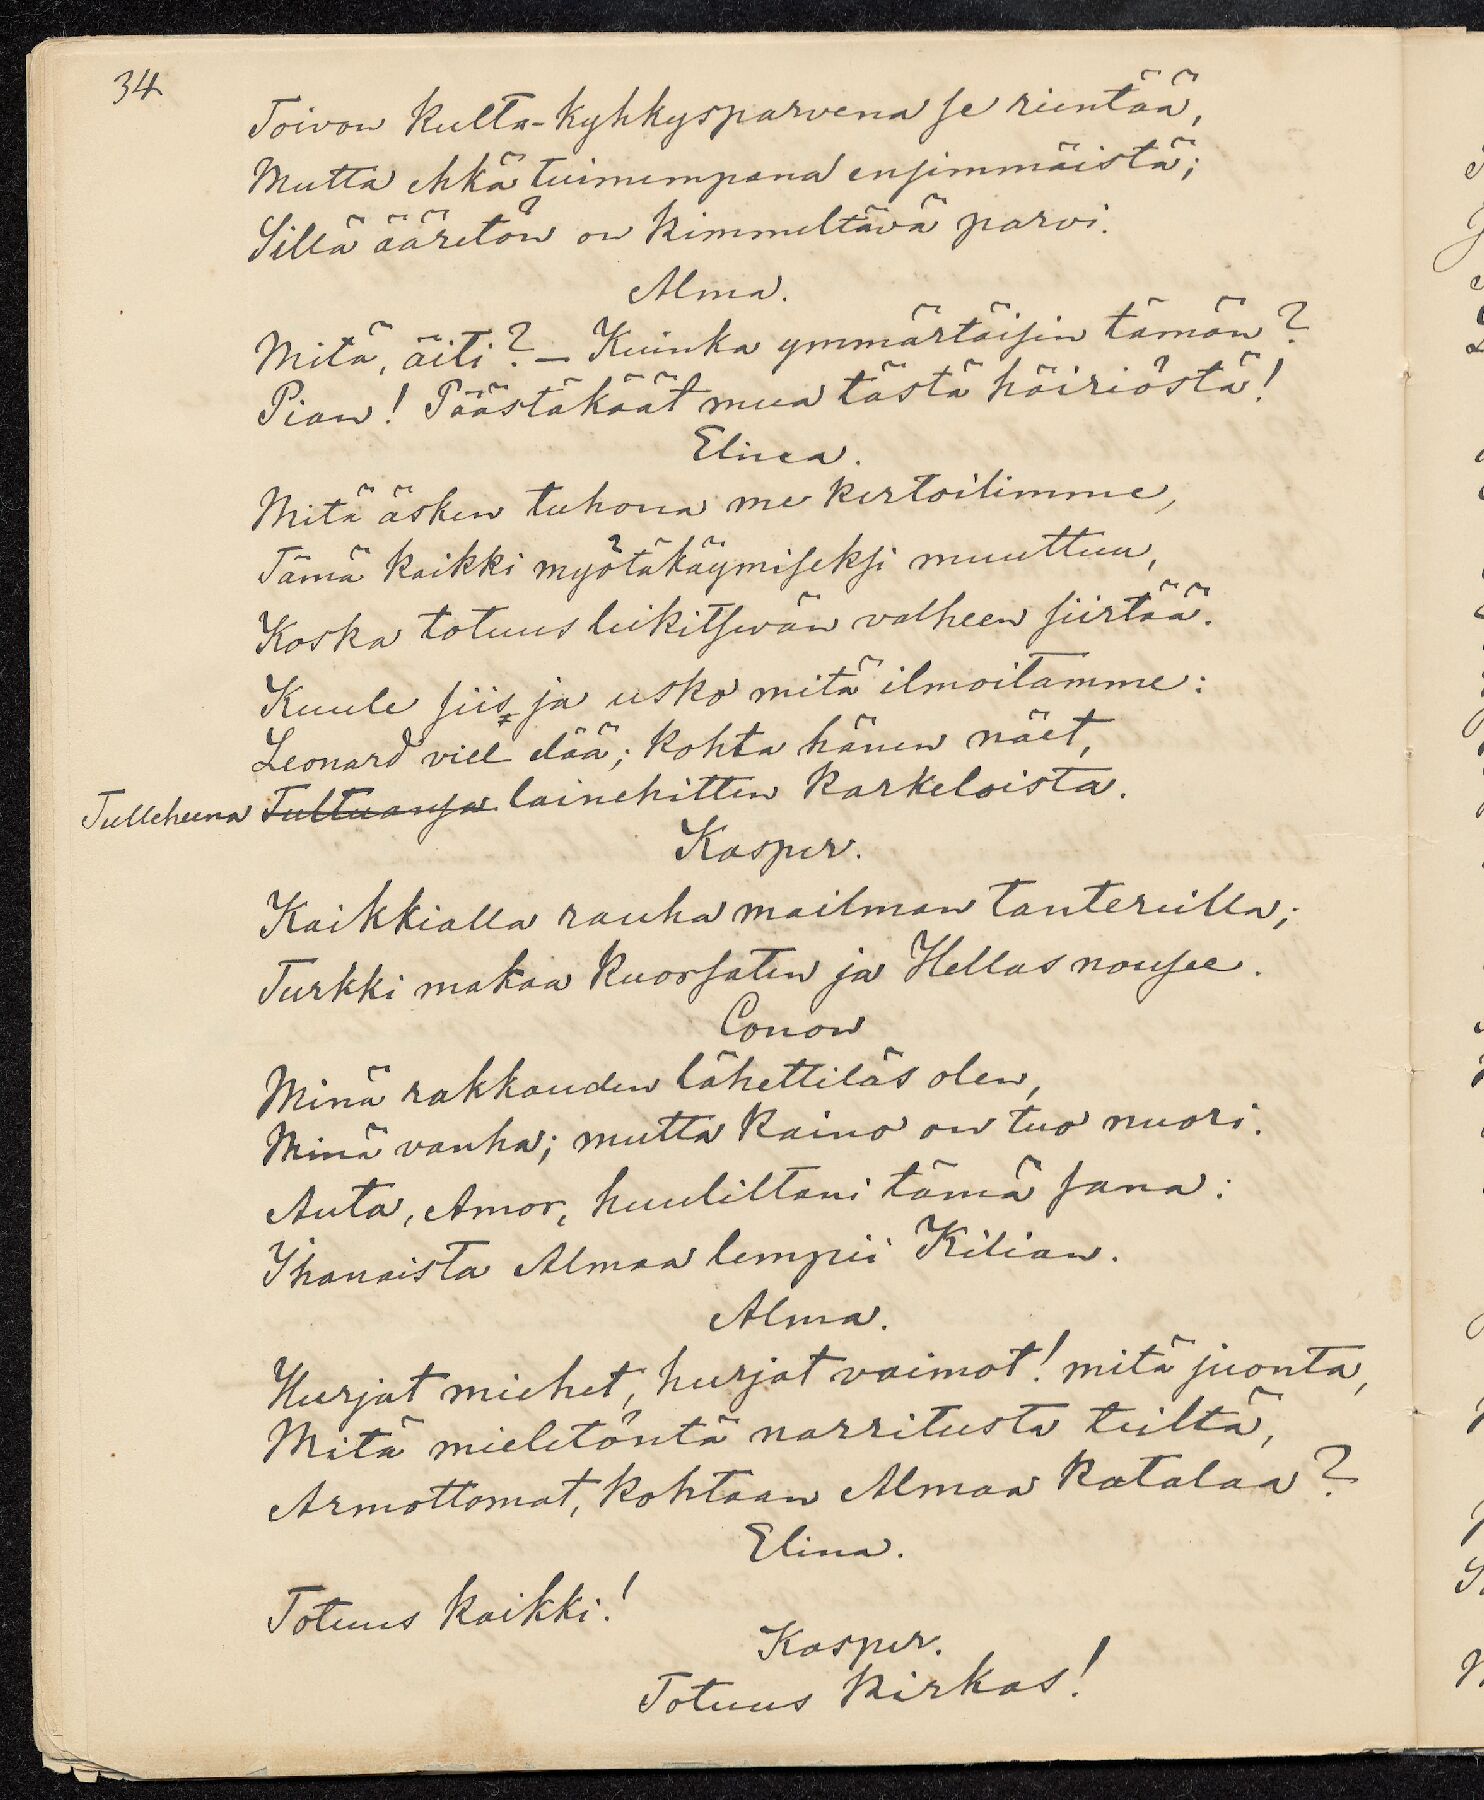 34
Toivon kulta-kyhkysparvena se rientää,
Mutta ehkä tuimempana ensimmäistä;
Sillä ääretön on kimmeltävä parvi.
Alma.
Mitä, äiti? – Kuinka ymmärtäisin tämän?
Pian! Päästäkäät mua tästä häiriöstä!
Elina.
Mitä äsken tuhona me kertoilimme,
Tämä kaikki myötäkäymiseksi muuttuu,
Koska totuus leikitsevän valheen siirtää.
Kuule siis ja usko mitä ilmoitamme:
Leonard viel elää; kohta hänen näet,
Tulleheena Tultuansa lainehitten karkeloista.
Kasper.
Kaikkialla rauha mailman tantereilla;
Turkki makaa kuorsaten ja Hellas nousee.
Conon
Minä rakkauden lähettiläs olen,
Minä vanha; mutta kaino on tuo nuori.
Auta, Amor, huuliltani tämä sana:
Ihanaista Almaa lempii Kilian.
Alma.
Hurjat miehet, hurjat vaimot! mitä juonta,
Mitä mieletöntä narritusta teiltä,
Armottomat, kohtaan Almaa katalaa?
Elina.
Totuus kaikki!
Kasper.
Totuus kirkas!